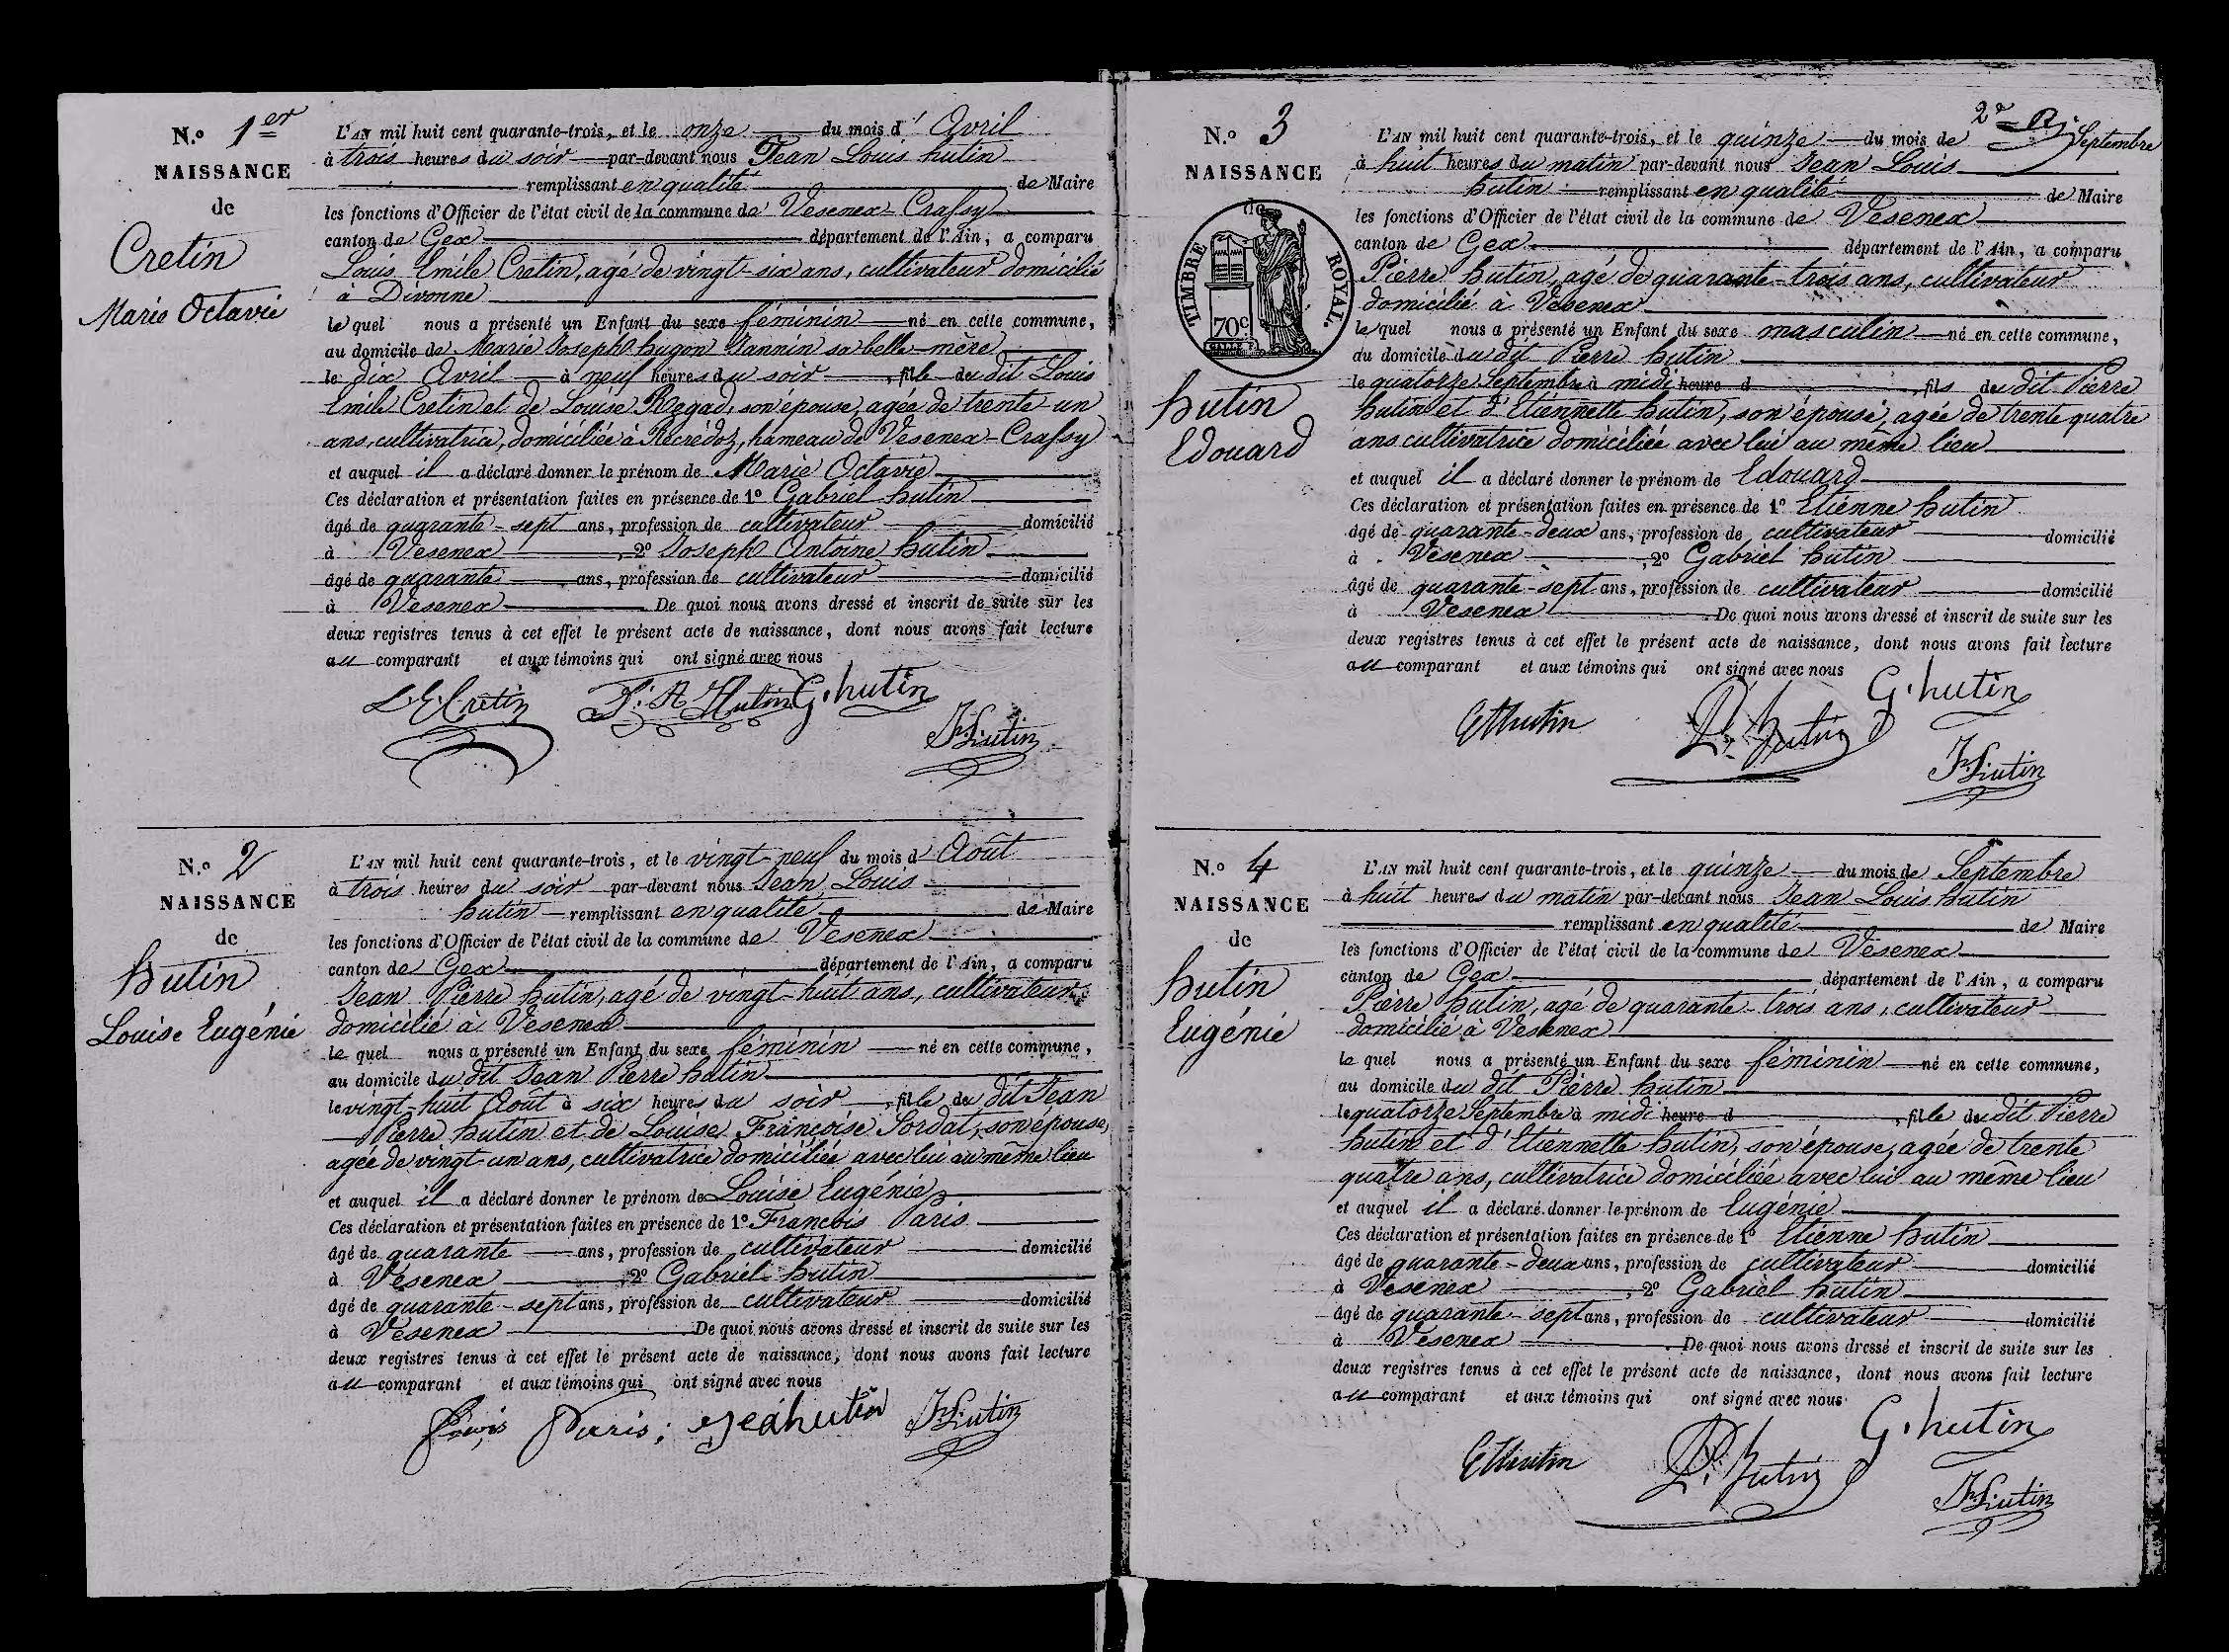 N.o 1er
NAISSANCE
de
Cretin
Marie Octavie
L'AN mil huit cent quarante-trois, et le onze du mois d' Avril
à trois heures du soir par-devant nous Jean Louis hutin
remplissant en qualité de Maire
les fonctions d'Officier de l'état civil de la commune de Vesenex-Crassy
canton de Gex département de l'Ain, a comparu
Louis Emile Cretin, agé de vingt-six ans, cultivateur domicilié
à Divonne
le quel nous a présenté un Enfant du sexe féminin né en cette commune,
au domicile de Marie Joseph hugon Jannin sa belle-mère
le dix Avril à neuf heures du soir, fille du dit Louis
Emile Cretin et de Louise Regad, son épouse, agée de trente-un
ans, cultivatrice, domiciliée à Recrédoz, hameau de Vesenex-Crassy
et auquel il a déclaré donner le prénom de Marie Octavie
Ces déclaration et présentation faites en présence de 1o Gabriel hutin
âgé de quarante-sept ans, profession de cultivateur domicilié
à Vesenex, 2o Joseph Antoine hutin
âgé de quarante ans, profession de cultivateur domicilié
à Vesenex De quoi nous avons dressé et inscrit de suite sur les
deux registres tenus à cet effet le présent acte de naissance, dont nous avons fait lecture
au comparant et aux témoins qui ont signé avec nous
L. E. Cretin J. A. Hutin G. hutin
J. L. hutin
N.o 2
NAISSANCE
de
hutin
Louise Eugénie
L'AN mil huit cent quarante-trois, et le vingt-neuf du mois d' Août
à trois heures du soir par-devant nous Jean Louis
hutin remplissant en qualité de Maire
les fonctions d'Officier de l'état civil de la commune de Vesenex
canton de Gex département de l'Ain, a comparu
Jean Pierre hutin, agé de vingt-huit ans, cultivateur
domicilié à Vesenex
le quel nous a présenté un Enfant du sexe féminin né en cette commune,
au domicile du dit Jean Pierre hutin
le vingt-huit Août à six heures du soir, fille du dit Jean
Pierre hutin et de Louise Françoise Sordat, son épouse,
agée de vingt-un ans, cultivatrice domiciliée avec lui au même lieu
et auquel il a déclaré donner le prénom de Louise Eugénie
Ces déclaration et présentation faites en présence de 1o François Paris
âgé de quarante ans, profession de cultivateur domicilié
à Vesenex, 2o Gabriel hutin
âgé de quarante-sept ans, profession de cultivateur domicilié
à Vesenex De quoi nous avons dressé et inscrit de suite sur les
deux registres tenus à cet effet le présent acte de naissance, dont nous avons fait lecture
au comparant et aux témoins qui ont signé avec nous
Paris; hutin J. L. hutin
2e
N.o 3
NAISSANCE
de
TIMBRE ROYAL.
70c
hutin
Edouard
L'AN mil huit cent quarante-trois, et le quinze du mois de Septembre
à huit heures du matin par-devant nous Jean Louis
hutin remplissant en qualité de Maire
les fonctions d'Officier de l'état civil de la commune de Vesenex
canton de Gex département de l'Ain, a comparu
Pierre hutin, agé de quarante-trois ans, cultivateur
domicilié à Vesenex
le quel nous a présenté un Enfant du sexe masculin né en cette commune,
au domicile du dit Pierre hutin
le quatorze Septembre à midi heure d, fils du dit Pierre
hutin et d'Etiennette hutin, son épouse, agée de trente quatre
ans cultivatrice domiciliée avec lui au même lieu
et auquel il a déclaré donner le prénom de Edouard
Ces déclaration et présentation faites en présence de 1o Etienne hutin
âgé de quarante-deux ans, profession de cultivateur domicilié
à Vesenex, 2o Gabriel hutin
âgé de quarante-sept ans, profession de cultivateur domicilié
à Vesenex. De quoi nous avons dressé et inscrit de suite sur les
deux registres tenus à cet effet le présent acte de naissance, dont nous avons fait lecture
au comparant et aux témoins qui ont signé avec nous
G. hutin
Et hutin P. hutin
J. L. hutin
N.o 4
NAISSANCE
de
hutin
Eugénie
L'AN mil huit cent quarante-trois, et le quinze du mois de Septembre
à huit heures du matin par-devant nous Jean Louis hutin
remplissant en qualité de Maire
les fonctions d'Officier de l'état civil de la commune de Vesenex
canton de Gex département de l'Ain, a comparu
Pierre hutin, agé de quarante-trois ans, cultivateur
domicilié à Vesenex
le quel nous a présenté un Enfant du sexe féminin né en cette commune,
au domicile du dit Pierre hutin
le quatorze Septembre à midi heure d, fille du dit Pierre
hutin et d'Etiennette hutin, son épouse, agée de trente
quatre ans, cultivatrice domiciliée avec lui au même lieu
et auquel il a déclaré donner le prénom de Eugénie
Ces déclaration et présentation faites en présence de 1o Etienne hutin
âgé de quarante-deux ans, profession de cultivateur domicilié
à Vesenex, 2o Gabriel hutin
âgé de quarante-sept ans, profession de cultivateur domicilié
à Vesenex. De quoi nous avons dressé et inscrit de suite sur les
deux registres tenus à cet effet le présent acte de naissance, dont nous avons fait lecture
au comparant et aux témoins qui ont signé avec nous
G. hutin
Et hutin P. hutin
J. L. hutin